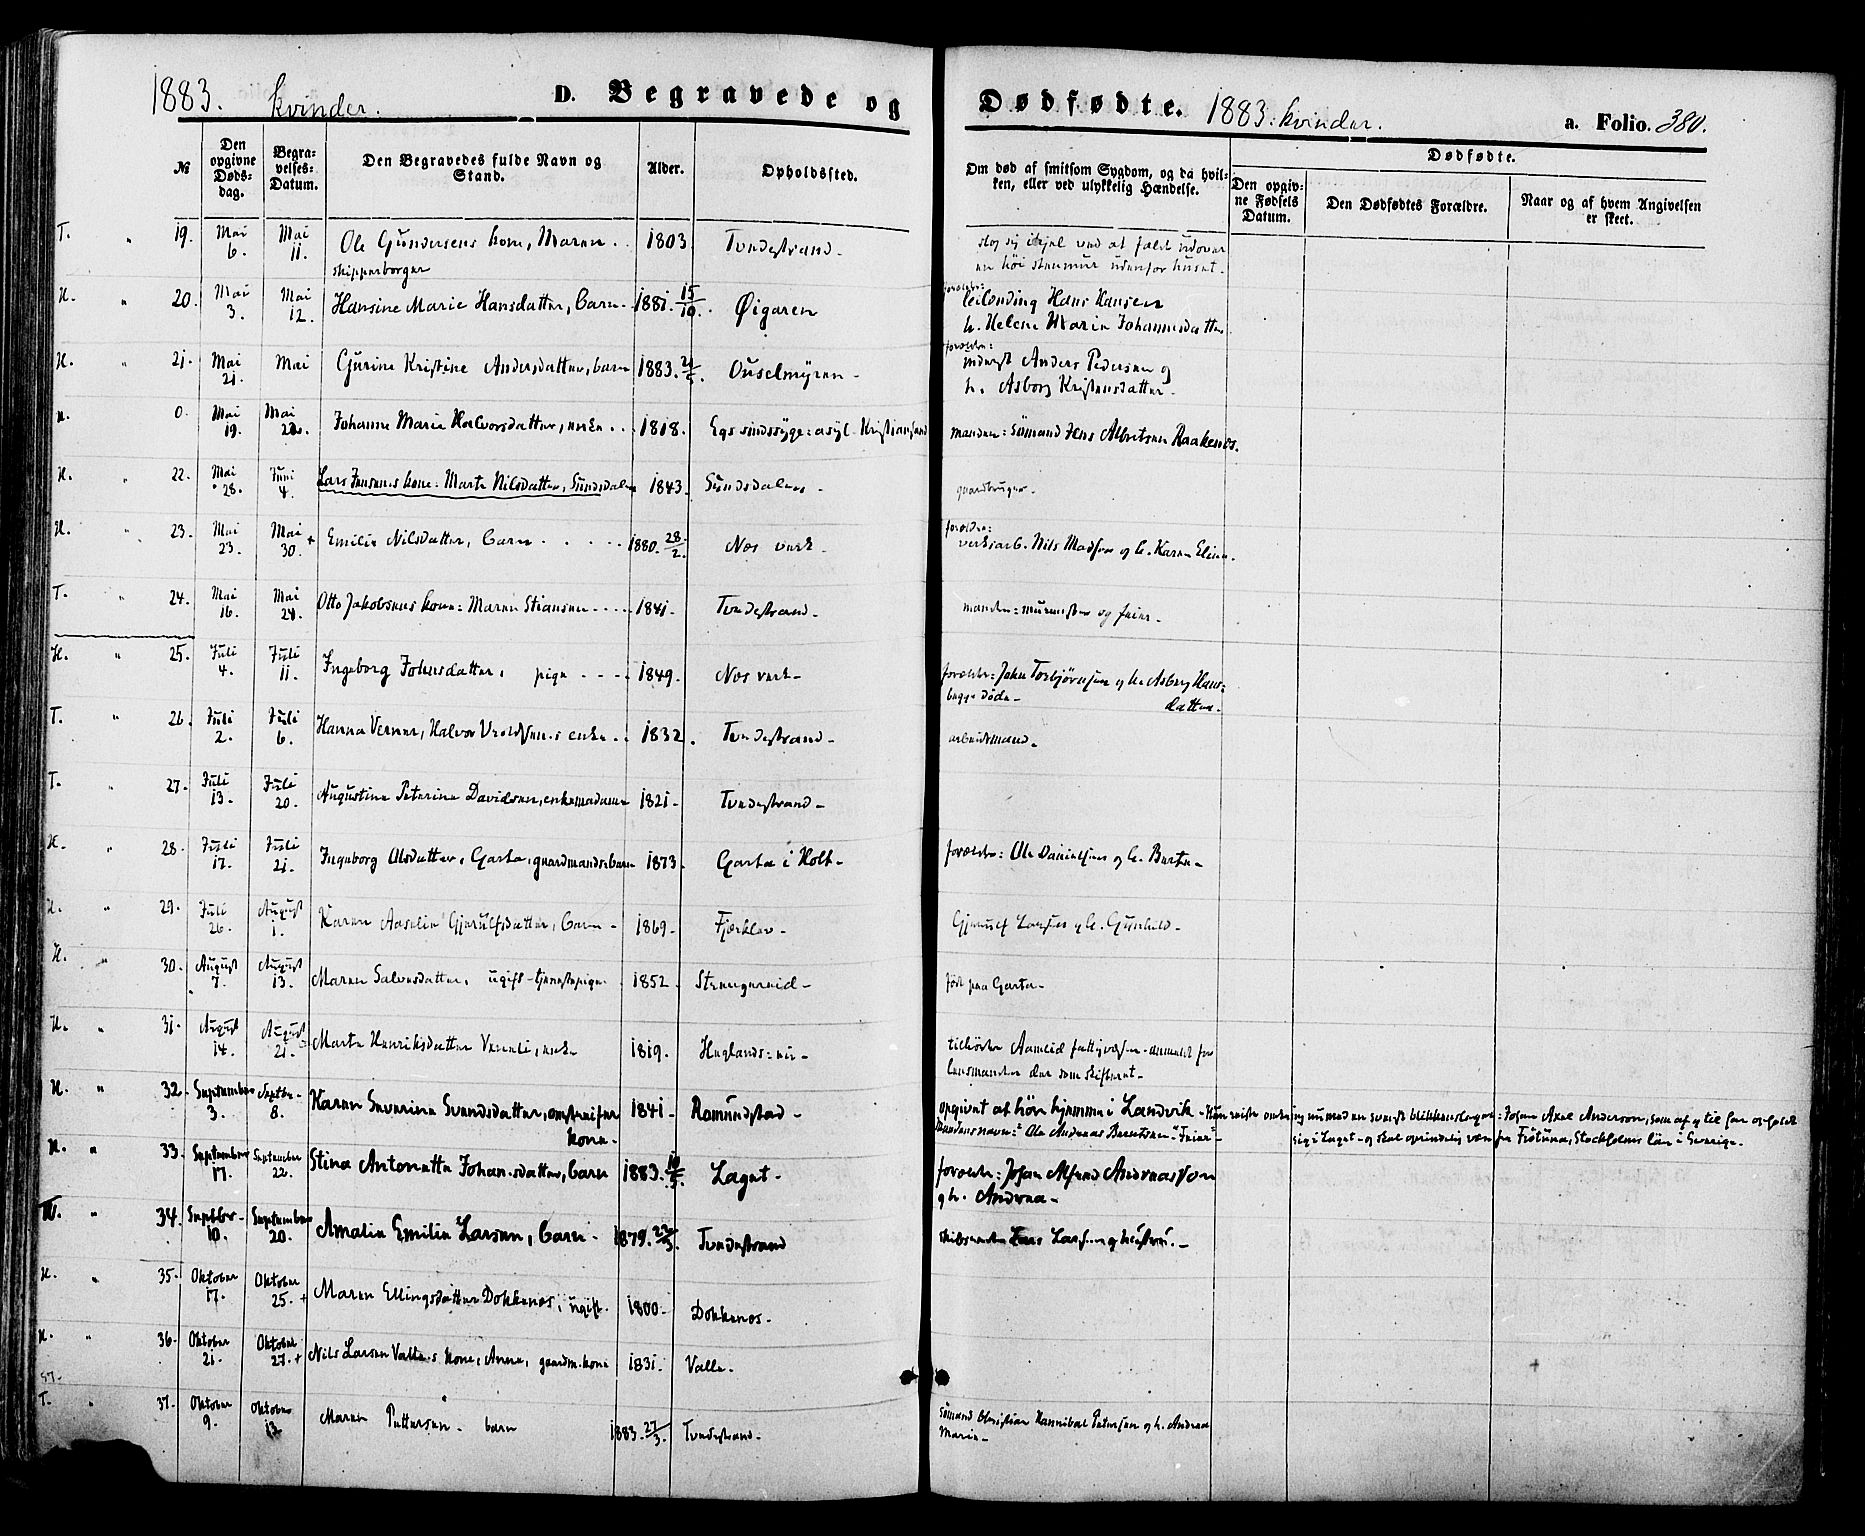 1883. kvinder. D. Begravede og Dødfødte. 1883. kvinder. a. Folio. 380.
№ Den opgivne Dødsdag. Begravelses-Datum. Den Begravedes fulde Navn og Stand. Alder. Opholdssted. Om død af smitsom Sygdom, og da hvilken, eller ved ulykkelig Hændelse. Dødfødte. Den opgivne Fødsels Datum. Den Dødfødtes Forældre. Naar og af hvem Angivelsen er skeet.
T. " 19. Mai 6. Mai 11. Ole Gundersens kone, Maren. 1803 Tvedestrand. slog sig ihjel ved at falde udover
skipperborger en høi stenmur udenfor huset.
H. " 20. Mai 3. Mai 12. Hansine Marie Hansdatter, barn 1881 15/10. Øigaren forældre: leilending Hans Hansen
h. Helene Marie Johannesdatter
H. " 21. Mai 21. Mai Gurine Kristine Andersdatter, barn 1883. Ouselmyren forældre: inderst Anders Pedersen og
h. Asborg Kristensdatter.
H. 0. Mai 19. Mai Johanne Marie Halvorsdatter, enke 1818. Egs sindssyge: asyl. Kristiansand manden: Sømand Jens Albretsen Raakenes.
H. " 22. Mai 28. Juni 4. Lars Jensens kone: Marte Nilsdatter, Sundsdalen 1843. Sundsdalen. gaardbruger.
H. " 23. Mai 23. Mai 30. + Emilie Nilsdatter, barn 1880. 28/2. Nes verk. forældre:
verksarb. Nils Madsen og h. Karen Eline.
T. " 24. Mai 16. Mai 24. Otto Jakobsens kone: Maren Stiansen 1841. Tvedestrand. manden: murmester og feier.
H. " 25. Juli 4. Juli 11. Ingeborg Johnsdatter, pige 1849. Nes verk forældre: John Torbjørnsen og h. Asborg Hansdatter.
begge døde.
T. " 26. Juli 2. Juli 6. Hanna Verner, Halvor enke 1832. Tvedestrand arbeidsmand.
T. " 27. Juli 13. Juli 20. Augustine Peterine Davidsen, enkemadame 1821. Tvedestrand
H. " 28. Juli 17. Juli 21. Ingeborg Olsdatter, Garta, gaardmandsbarn 1873. Garta i Holt forældre: Ole Danielsen og h. Berte
H. " 29. Juli 26. August 1. Karen Aaselie Gjerulfsdatter, barn 1869. Fjærklev Gjerulf Larsen og h. Gunhild.
H. " 30. August 7. August 13. Maren Salvesdatter, ugift tjenestepige 1852. født paa Garta
H. " 31. August 14. August 21. Marte Henriksdatter enke 1819. tilhørte Aamlid fattigvæsen anmeldt for
lensmanden der som skifteret.
H. " 32. September 3. Septbr. 8. Karen Severine Svendsdatter, omstreifer kone. 1841. Romundstad opgivet at høre hjemme i Landvik. Hun reiste omkring nu med en svensk blikkenslager: Johan Axel Andersson, som af og til har opholdt
mandens navn: Ole Andreas Berntsen "Feier" sig i Laget og skal oprindelig være fra Frötuna, Stockholms län i Sverige.
H. " 33. September 17. September 22. Stina Antonette Johansdatter, barn 1883. Laget. forældre: Johan Alfred Andreasson
og h. Andrea
T. " 34. Septbr. 10. September 20. Amalie Emilie Larsen, barn 1879. Tvedestrand Jens Larsen og hustru.
H. " 35. Oktober 17. Oktober 25. + Maren Ellingsdatter Dokkenes, ugift. 1800. Dokkenes.
H. " 36. Oktober 21. Oktober 27. + Nils Larsen Valles kone, Anne, gaardm.kone 1831. Valle.
T. " 37. Oktober 9. Oktober 13 Maren Pettersen. barn 1883. 27/3. Tvedestrand. Sømand Christian Hannibal Petersen og h. Andrea
Marie